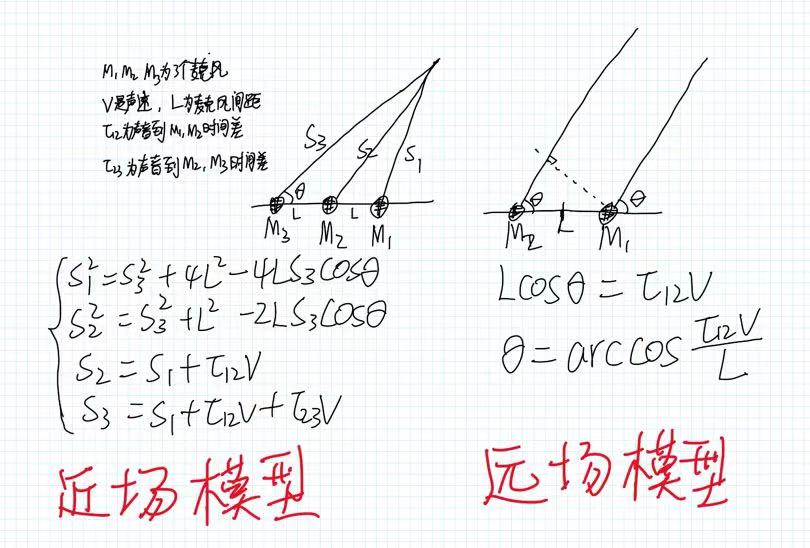 M₁ M₂ M₃为3个麦克风
V是声速，L为麦克风间距
τ₁₂为声音到M₁, M₂时间差
τ₂₃为声音到M₂, M₃时间差
S₃
S₂
S₁
θ
L
L
M₃
M₂
M₁
S₁²=S₃²+4L²-4LS₃COSθ
S₂²=S₃²+L²-2LS₃COSθ
S₂=S₁+τ₁₂V
S₃=S₁+τ₁₂V+τ₂₃V
近场模型
θ
θ
L
M₂
M₁
Lcosθ=τ₁₂V
θ=arccos τ₁₂V/L
远场模型